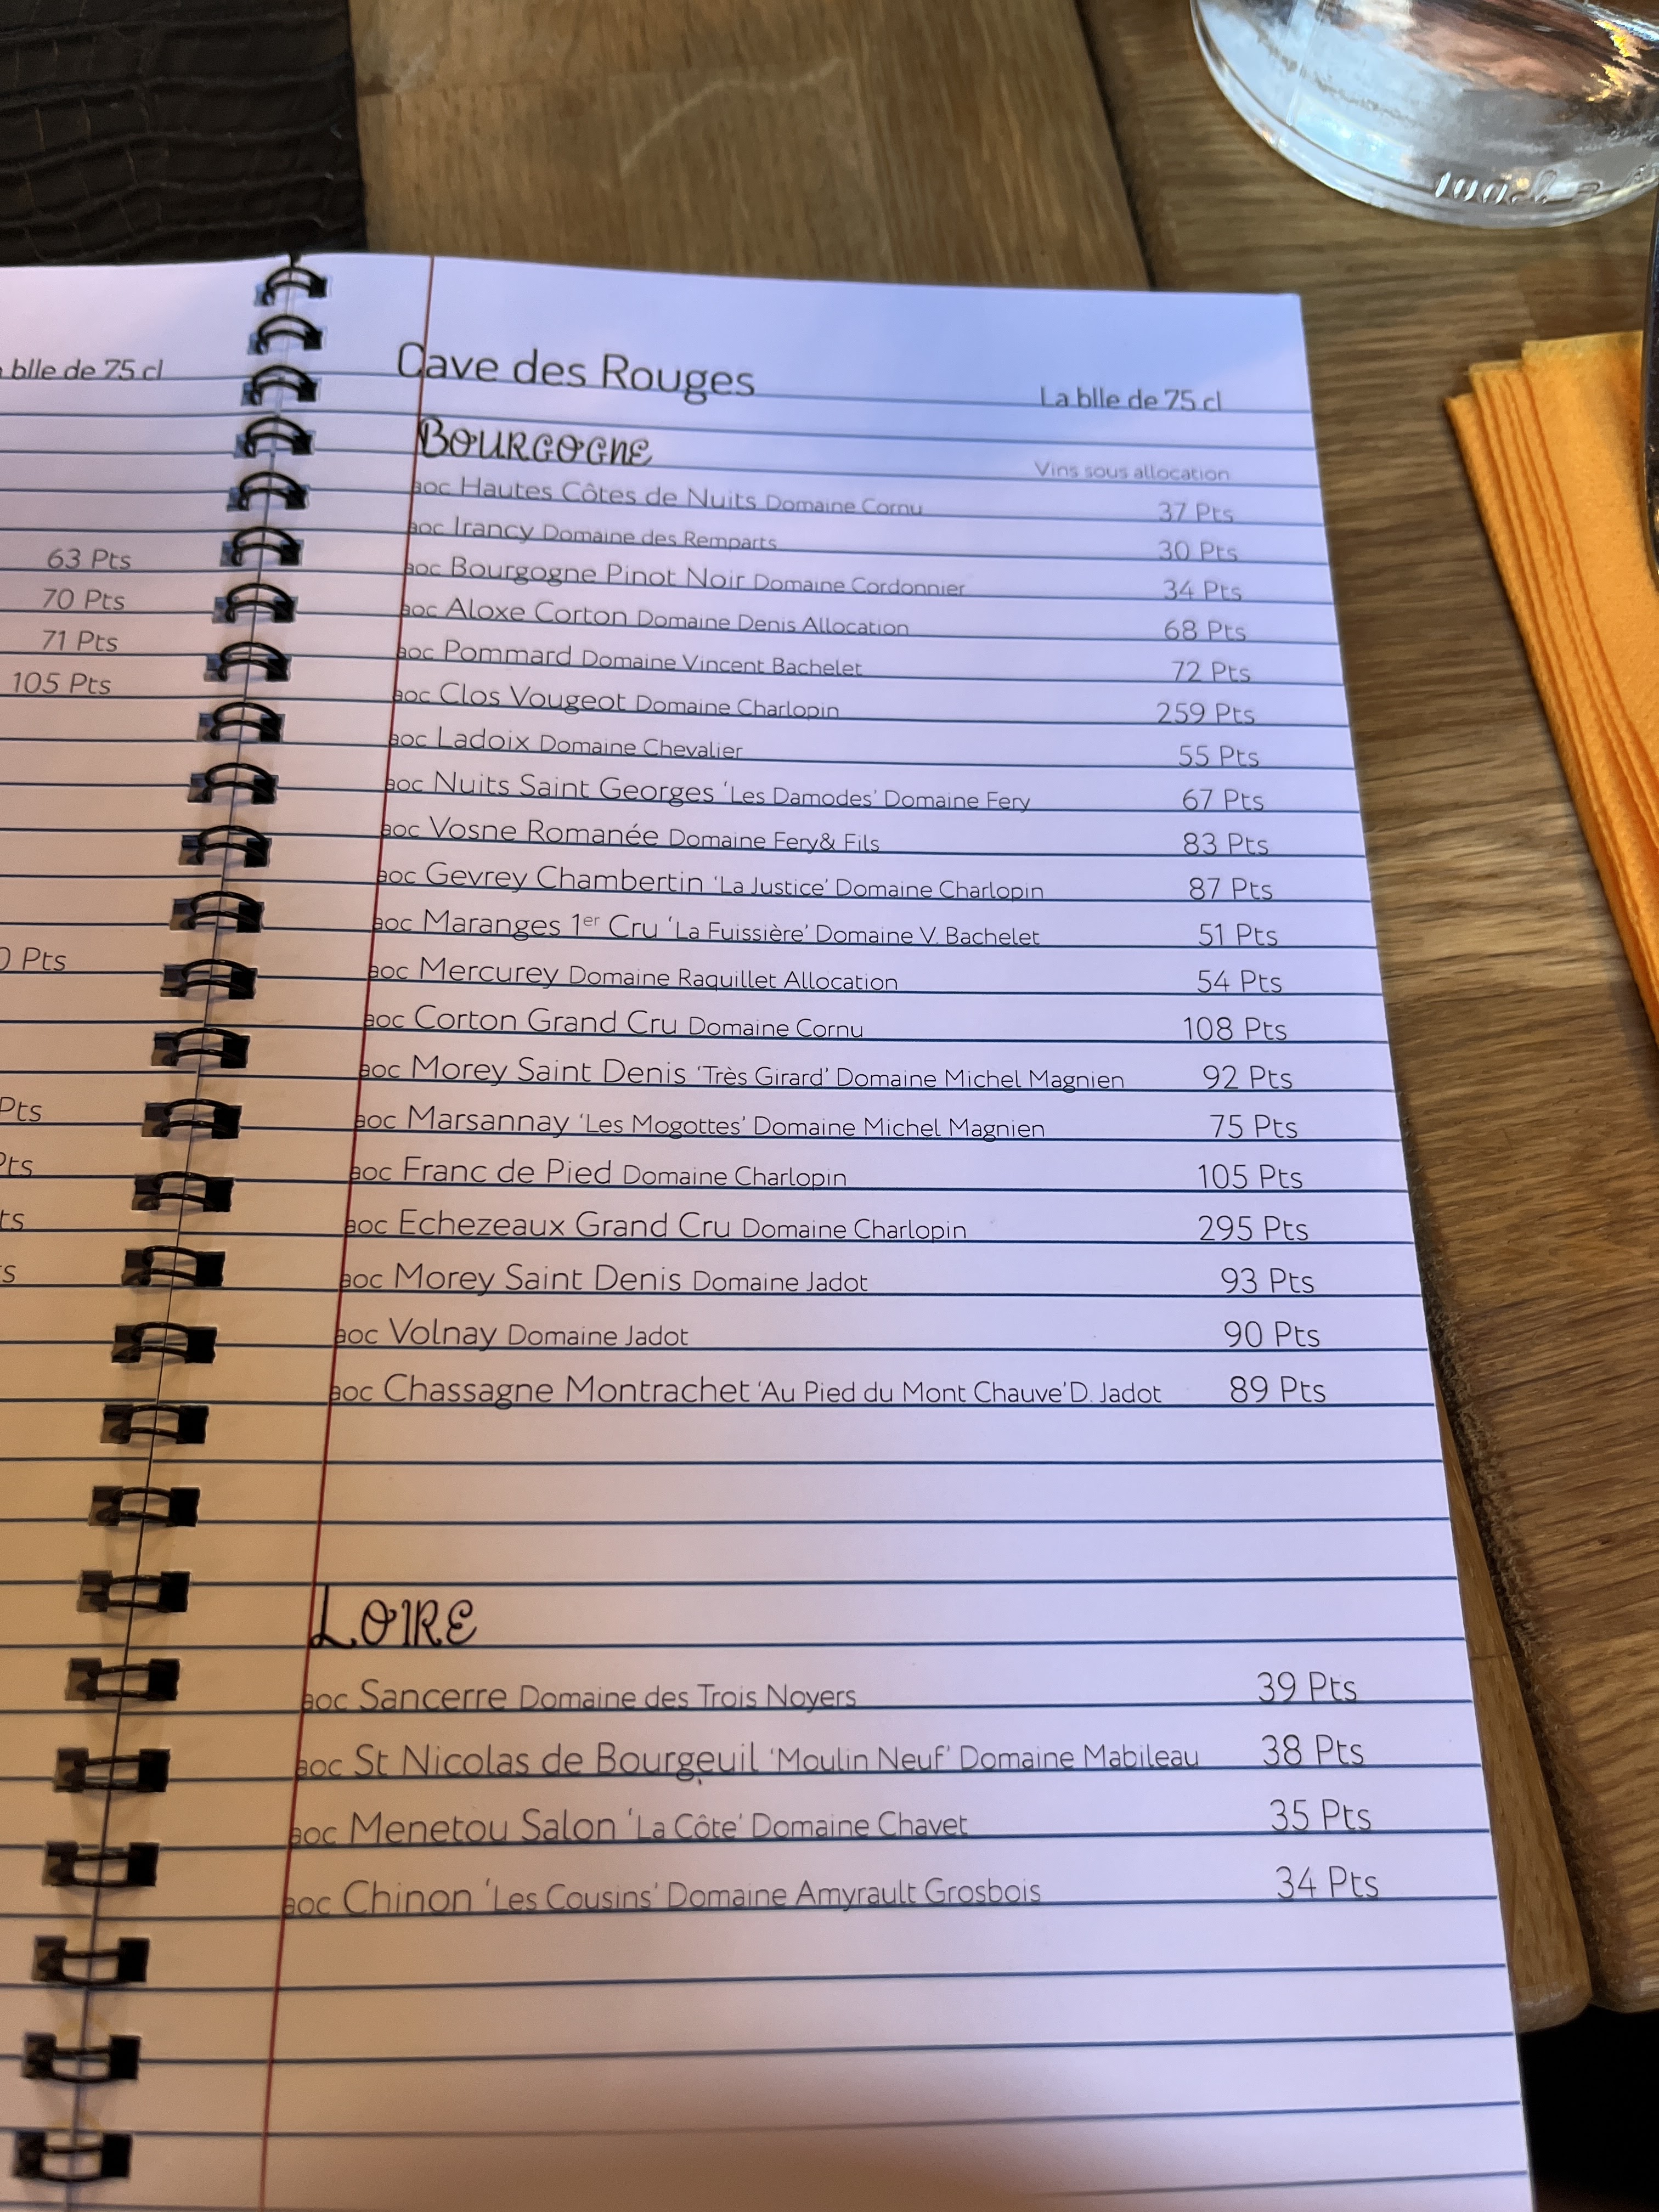 blle de 75 cl
63 Pts
70 Pts
71 Pts
105 Pts
Pts
Pts
Cave des Rouges
La blle de 75 cl
BOURGOGNE
Vins sous allocation
aoc Hautes Côtes de Nuits Domaine Cornu 37 Pts
aoc Irancy Domaine des Remparts 30 Pts
aoc Bourgogne Pinot Noir Domaine Cordonnier 34 Pts
aoc Aloxe Corton Domaine Denis Allocation 68 Pts
aoc Pommard Domaine Vincent Bachelet 72 Pts
aoc Clos Vougeot Domaine Charlopin 259 Pts
aoc Ladoix Domaine Chevalier 55 Pts
aoc Nuits Saint Georges 'Les Damodes' Domaine Fery 67 Pts
aoc Vosne Romanée Domaine Fery& Fils 83 Pts
aoc Gevrey Chambertin 'La Justice' Domaine Charlopin 87 Pts
aoc Maranges 1er Cru 'La Fuissière' Domaine V. Bachelet 51 Pts
aoc Mercurey Domaine Raquillet Allocation 54 Pts
aoc Corton Grand Cru Domaine Cornu 108 Pts
aoc Morey Saint Denis 'Très Girard' Domaine Michel Magnien 92 Pts
aoc Marsannay 'Les Mogottes' Domaine Michel Magnien 75 Pts
aoc Franc de Pied Domaine Charlopin 105 Pts
aoc Echezeaux Grand Cru Domaine Charlopin 295 Pts
aoc Morey Saint Denis Domaine Jadot 93 Pts
aoc Volnay Domaine Jadot 90 Pts
aoc Chassagne Montrachet 'Au Pied du Mont Chauve' D. Jadot 89 Pts
LOIRE
aoc Sancerre Domaine des Trois Noyers 39 Pts
aoc St Nicolas de Bourgeuil 'Moulin Neuf' Domaine Mabileau 38 Pts
aoc Menetou Salon 'La Côte' Domaine Chavet 35 Pts
aoc Chinon 'Les Cousins' Domaine Amyrault Grosbois 34 Pts